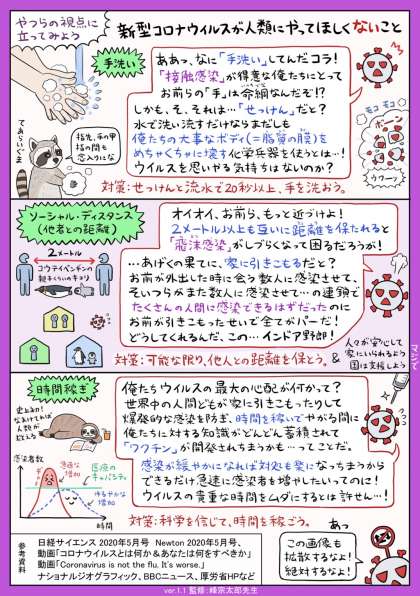 やつらの視点に
立ってみよう
新型コロナウイルスが人類にやってほしくないこと
手洗い
ああっ、なに「手洗い」してんだコラ!
「接触感染」が得意な俺たちにとって
お前らの「手」は命綱なんだぞ!?
しかも、そ、それは…「せっけん」だと?
水で洗い流すだけならまだしも
俺たちの大事なボディ(=脂質の膜)を
めちゃくちゃに壊す化学兵器を使うとは…!
ウイルスを思いやる気持ちはないのか?
対策:せっけんと流水で20秒以上、手を洗おう。
てあらいぐま
指先、手の甲
指の間も
念入りにな
モコモコ
ボーン
ウワー
ソーシャル・ディスタンス
(他者との距離)
2メートル
コウテイペンギンの
親子くらいのキョリ
オイオイ、お前ら、もっと近づけよ!
2メートル以上も互いに距離を保たれると
「飛沫感染」がしづらくなって困るだろうが!
…あげくの果てに、家に引きこもるだと?
お前が外出した時に会う数人に感染させて、
そいつらがまた数人に感染させて…の連鎖で
たくさんの人間に感染できるはずだったのに
お前が引きこもったせいで全てがパーだ!
どうしてくれるんだ、この…インドア野郎!
対策:可能な限り、他人との距離を保とう。
&
人々が安心して
家にいられるよう
国は支援しよう
マジで
時間稼ぎ
史上初!
なまけてれば
人類が
救える
俺たちウイルスの最大の心配が何かって?
世界中の人間どもが家に引きこもったりして
爆発的な感染を防ぎ、時間を稼いでやがる間に
俺たちに対する知識がどんどん蓄積されて
「ワクチン」が開発されちまうかも…ってことだ。
感染が緩やかになれば対処も楽になっちまうから
できるだけ急速に感染者を増やしたいってのに!
ウイルスの貴重な時間をムダにするとは許せん…!
対策:科学を信じて、時間を稼ごう。
感染者数
急激な
増加
医療の
キャパシティ
ゆるやかな
増加
時間
参考資料
日経サイエンス 2020年5月号 Newton 2020年5月号、
動画「コロナウイルスとは何か&あなたは何をすべきか」
動画「Coronavirus is not the flu. It's worse.」
ナショナルジオグラフィック、BBCニュース、厚労省HPなど
あっ
この画像も
拡散するなよ!
絶対するなよ!
ver.1.1 監修:峰宗太郎先生